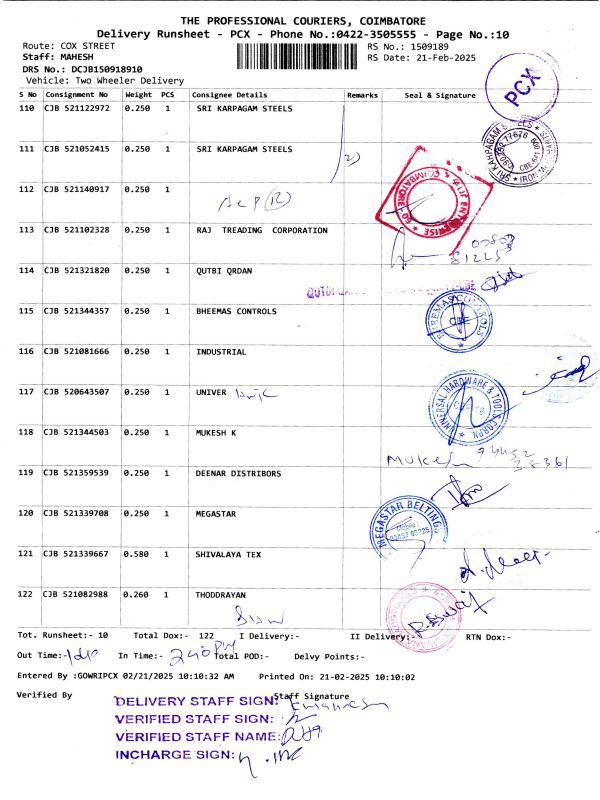 THE PROFESSIONAL COURIERS, COIMBATORE
Delivery Runsheet - PCX - Phone No.:0422-3505555 - Page No.:10
Route: COX STREET
RS No.: 1509189
Staff: MAHESH
RS Date: 21-Feb-2025
DRS No.: DCJB150918910
Vehicle: Two Wheeler Delivery
PCX
S No Consignment No Weight PCS Consignee Details Remarks Seal & Signature
110 CJB 521122972 0.250 1 SRI KARPAGAM STEELS
111 CJB 521052415 0.250 1 SRI KARPAGAM STEELS
112 CJB 521140917 0.250 1
113 CJB 521102328 0.250 1 RAJ TREADING CORPORATION
114 CJB 521321820 0.250 1 QUTBI QRDAN
115 CJB 521344357 0.250 1 BHEEMAS CONTROLS
116 CJB 521081666 0.250 1 INDUSTRIAL
117 CJB 520643507 0.250 1 UNIVER
UNIVERSAL HARDWARE & TOOLS CORPN
118 CJB 521344503 0.250 1 MUKESH K
Mukesh
119 CJB 521359539 0.250 1 DEENAR DISTRIBORS
120 CJB 521339708 0.250 1 MEGASTAR
MEGASTAR BELTING
121 CJB 521339667 0.580 1 SHIVALAYA TEX
122 CJB 521082988 0.260 1 THODDRAYAN
Tot. Runsheet:- 10 Total Dox:- 122 I Delivery:- II Delivery:- RTN Dox:-
Out Time:- In Time:- 240 PM Total POD:- Delvy Points:-
Entered By :GOWRIPCX 02/21/2025 10:10:32 AM Printed On: 21-02-2025 10:10:02
Verified By Staff Signature
DELIVERY STAFF SIGN:
VERIFIED STAFF SIGN:
VERIFIED STAFF NAME:
INCHARGE SIGN: